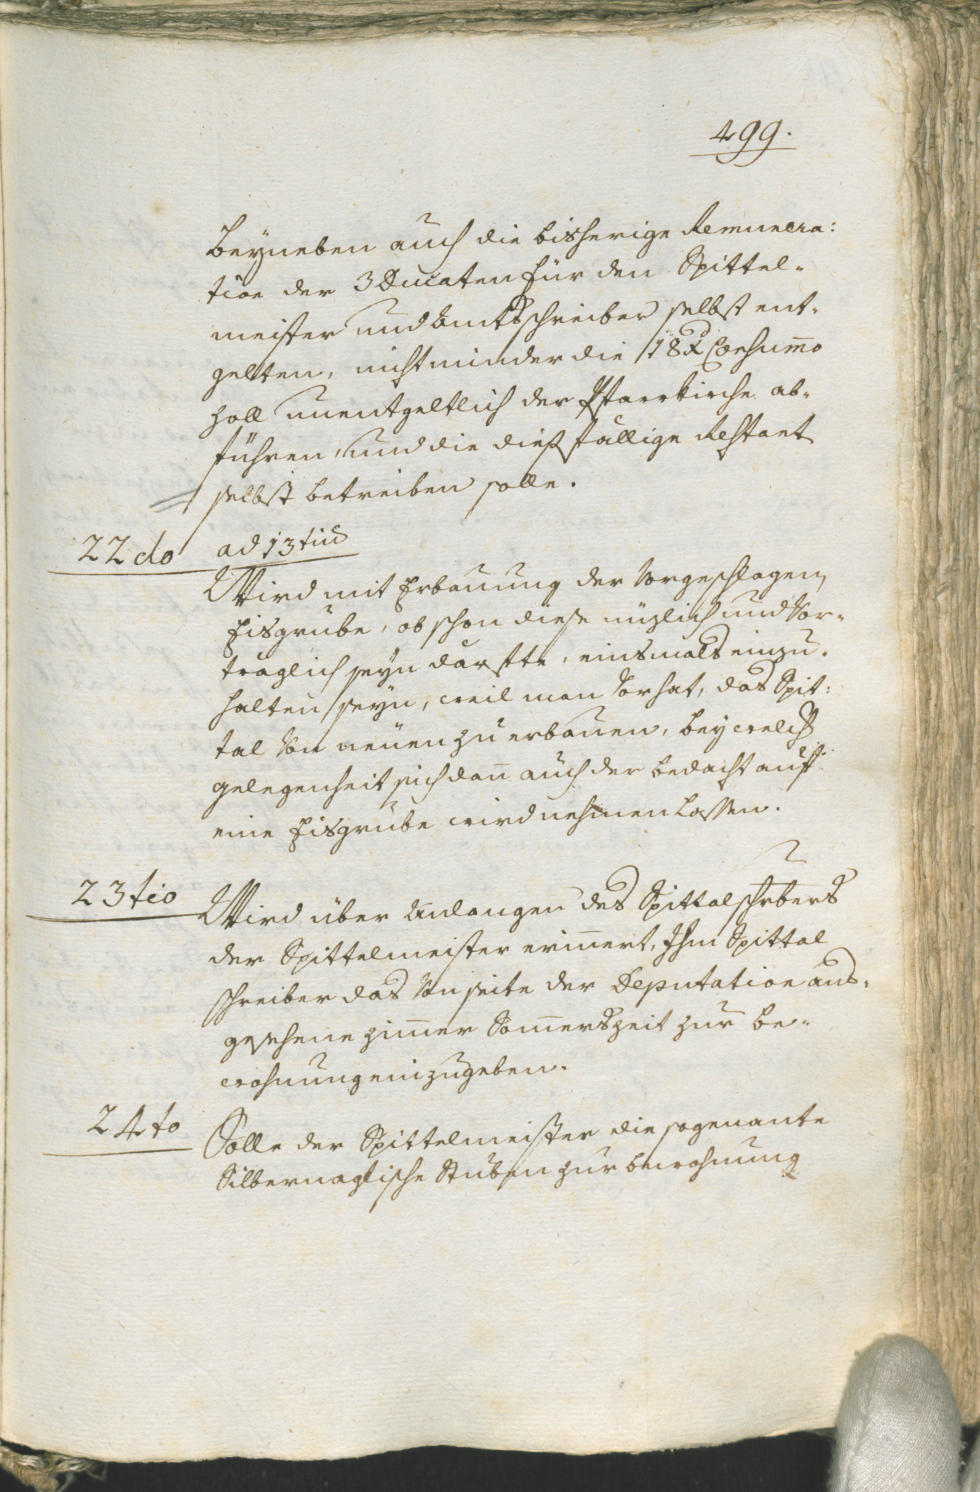 499.
beyneben auch die bisherige Remunera:
tion der 3 Ducaten für den Spittel-
meister und Amtsschreiber selbst ent-
gelten, nicht minder die 18 x Consumo
Zoll unentgeltlich der Pfarrkirche ab-
führen, und die dießfällige Restant
selbst betreiben solle.
22do ad 13tiū
Wird mit Erbauung der vorgeschlagen
Eisgrube, obschon diese nüzlich und vor-
träglich seyn därffte, einsmals einzu-
halten seyn, weil man vorhat, das Spit:
tal von neüen zu erbauen, bey welch
gelegenheit sich dan̄ auch der bedacht auf
eine Eisgrube wird nehmen lassen.
23tio Wird über Anlangen des Spittalschrbers
der Spittelmeister erin̄ert, Ihm Spittal
schreiber das von seite der Deputation aus-
gesehene zim̄er Som̄erszeit zur be-
wohnung einzugeben.
24to Solle der Spittelmeister die sogenante
Silbernaglische Stuben zur bewohnung